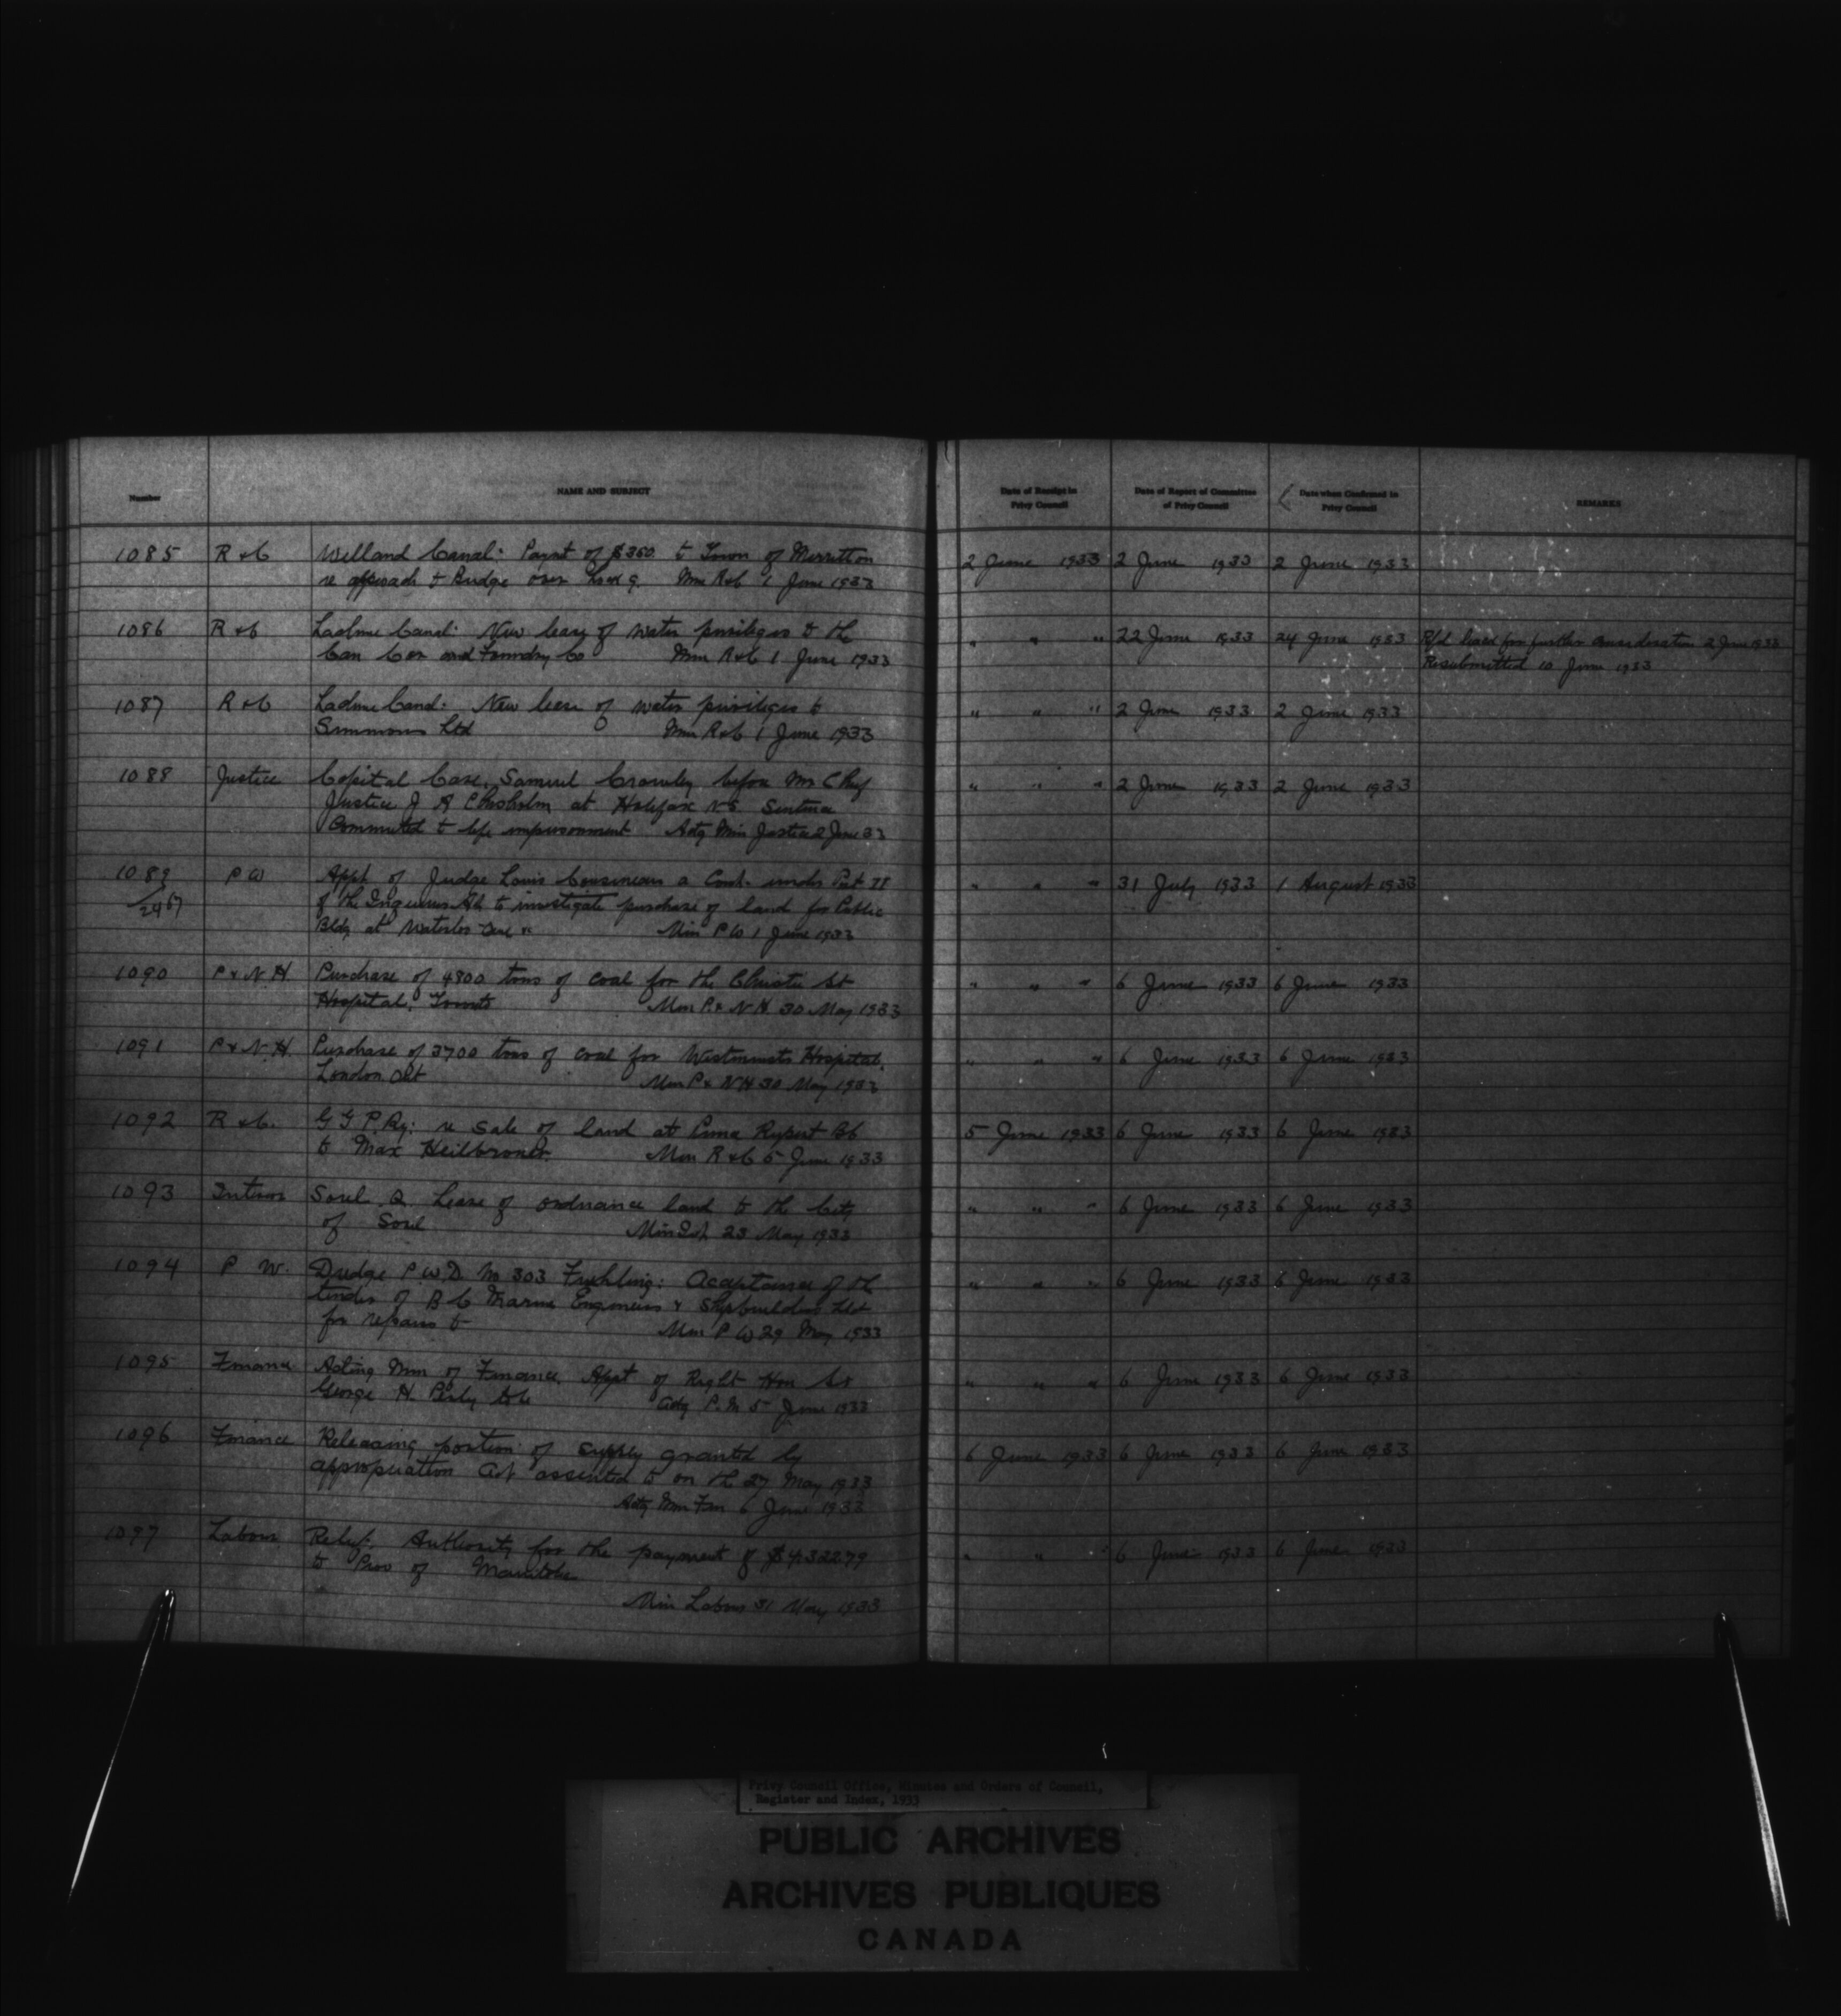 Number
NAME AND SUBJECT
Date of Receipt in
Privy Council
Date of Report of Committee
of Privy Council
Date when Confirmed in
Privy Council
REMARKS
1085 R & C Welland Canal: Paymt of $350 to Town of Merritton 2 June 1933 2 June 1933 2 June 1933
re approach to Bridge over Lock 9. Min R&C 1 June 1933
1086 R & C Lachine Canal: New lease of water privileges to the " " " 22 June 1933 24 June 1933 Ref'd back for further consideration 2 June 1933
Can Car and Foundry Co Min R&C 1 June 1933 Resubmitted 10 June 1933
1087 R & C Lachine Canal: New lease of water privileges to " " " 2 June 1933 2 June 1933
Simmons Ltd Min R&C 1 June 1933
1088 Justice Capital Case, Samuel Crowley before Mr Chief " " " 2 June 1933 2 June 1933
Justice J A Chisholm at Halifax N.S. Sentence
Commuted to life imprisonment Actg Min Justice 2 June 33
1089 P W Appt of Judge Louis Cousineau a Comr. under Part II " " " 31 July 1933 1 August 1933
2467 of the Inquiries Act to investigate purchase of land for Public
Bldg at Waterloo Que Min P W 1 June 1933
1090 P & N.H. Purchase of 4800 tons of coal for the Christie St " " " 6 June 1933 6 June 1933
Hospital, Toronto Min P.& N H. 30 May 1933
1091 P & N.H. Purchase of 3700 tons of coal for Westminster Hospital, " " " 6 June 1933 6 June 1933
London Ont Min P & N H 30 May 1933
1092 R & C. G T P. Ry: re sale of land at Prince Rupert BC 5 June 1933 6 June 1933 6 June 1933
to Max Heilbroner. Min R & C 5 June 1933
1093 Interior Sorel Q Lease of ordnance land to the City " " " 6 June 1933 6 June 1933
of Sorel Min Int 23 May 1933
1094 P W. Dredge P.W.D. No 303 Fruhling: Acceptance of the " " " 6 June 1933 6 June 1933
tender of B C Marine Engineers & Shipbuilders Ltd
for repairs to Min P W 29 May 1933
1095 Finance Acting Min of Finance, Appt of Right Hon Sir " " " 6 June 1933 6 June 1933
George H. Perley Actg P.M 5 June 1933
1096 Finance Releasing portion of supply granted by 6 June 1933 6 June 1933 6 June 1933
appropriation Act assented to on the 27 May 1933
Actg Min Fin 6 June 1933
1097 Labour Relief: Authority for the payment of $4,322.79 " " " 6 June 1933 6 June 1933
to Prov of Manitoba
Min Labour 31 May 1933
Privy Council Office, Minutes and Orders of Council,
Register and Index, 1933
PUBLIC ARCHIVES
ARCHIVES PUBLIQUES
CANADA